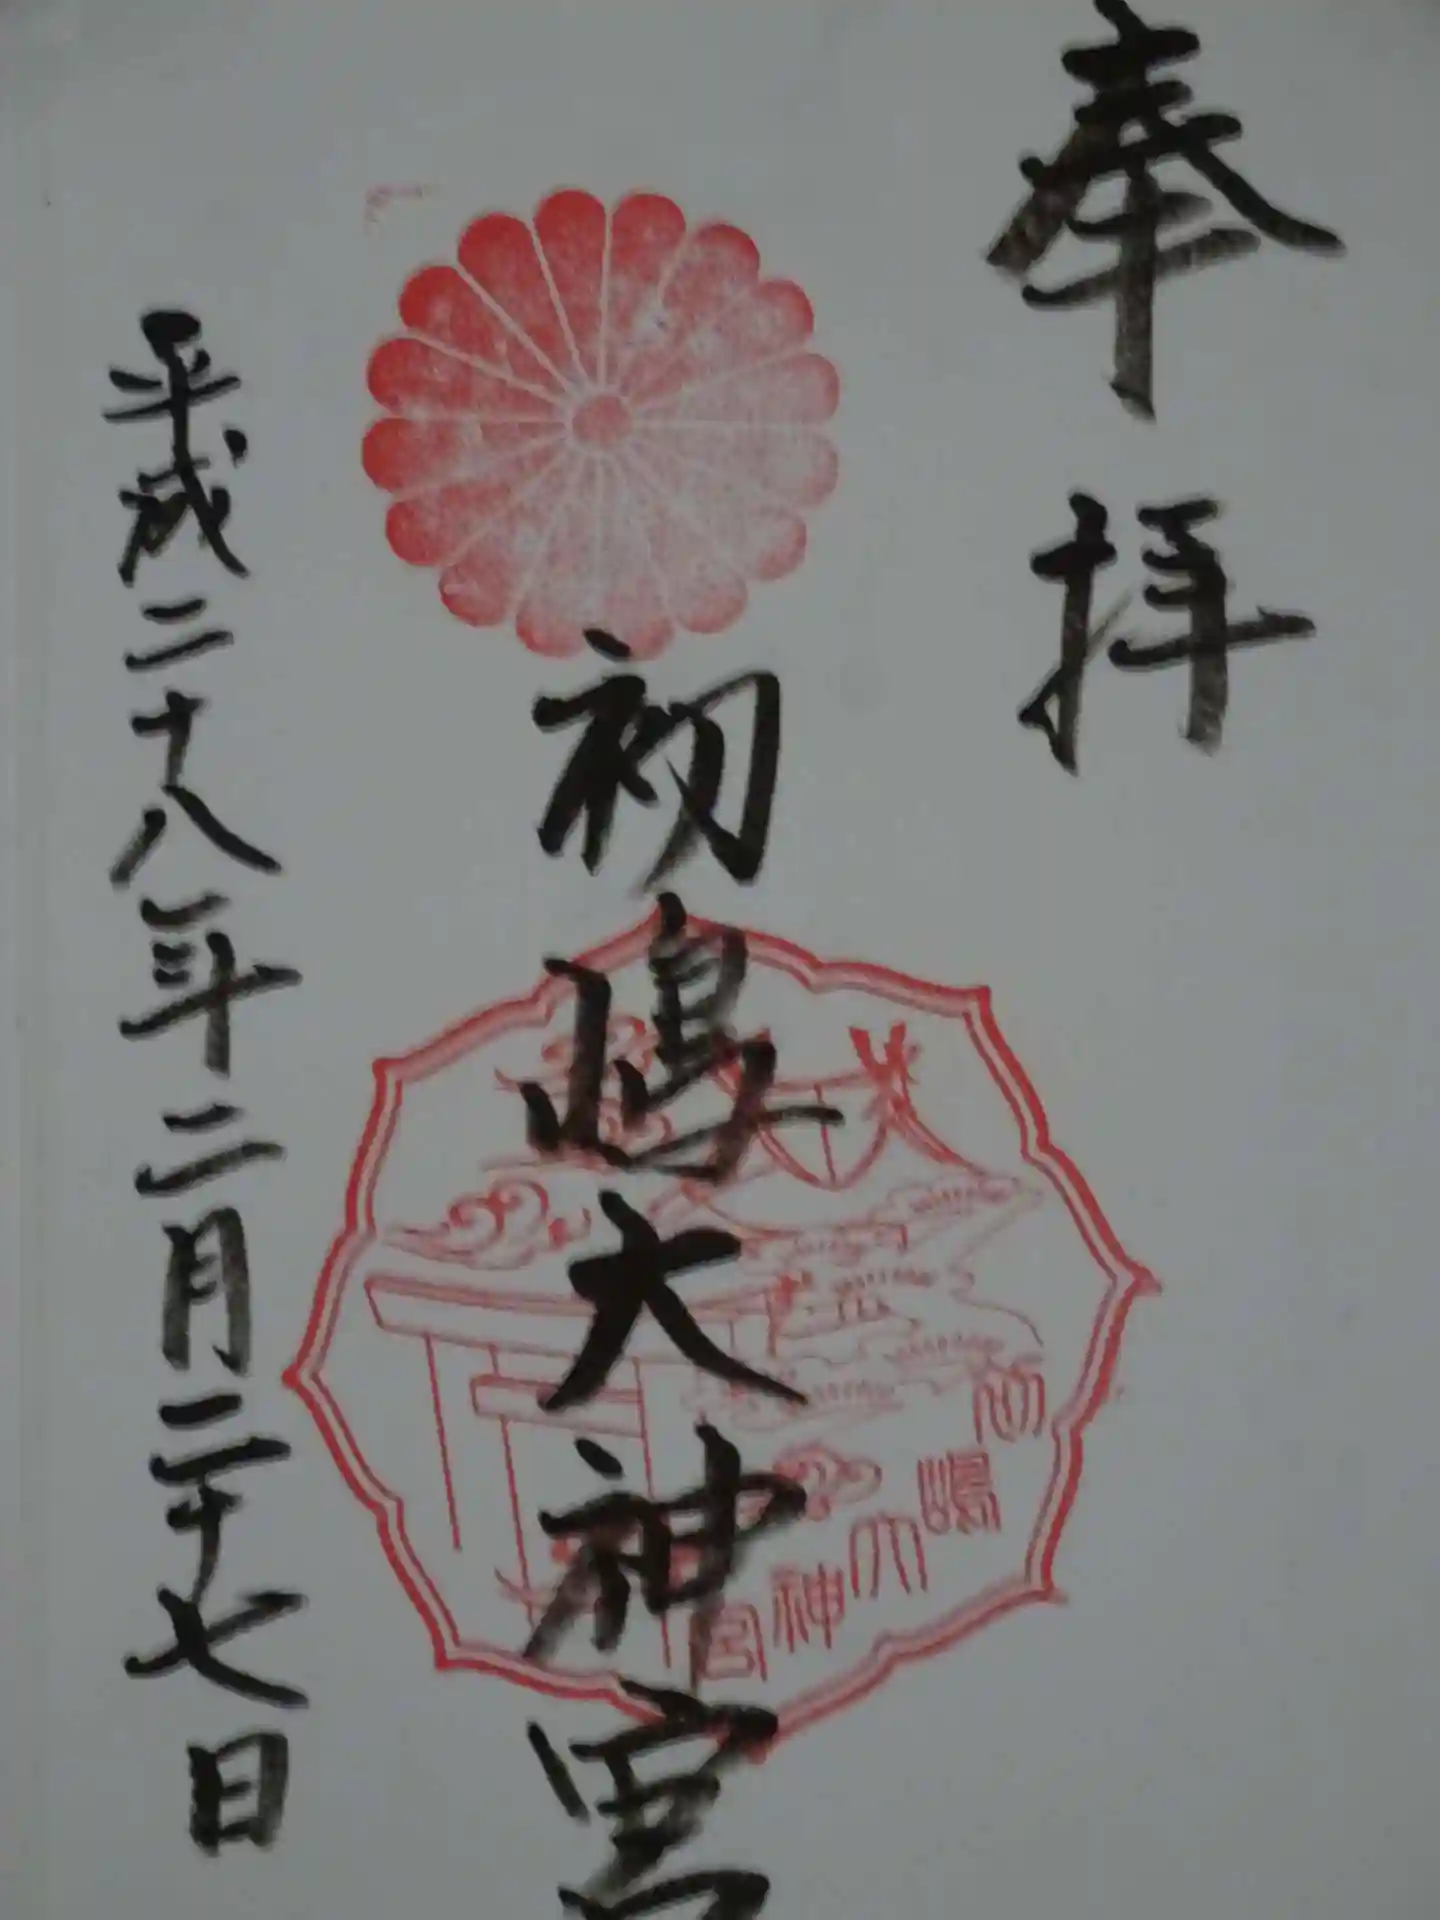 奉拝
初嶋大神宮
平成二十八年二月二十七日
初嶋大神宮